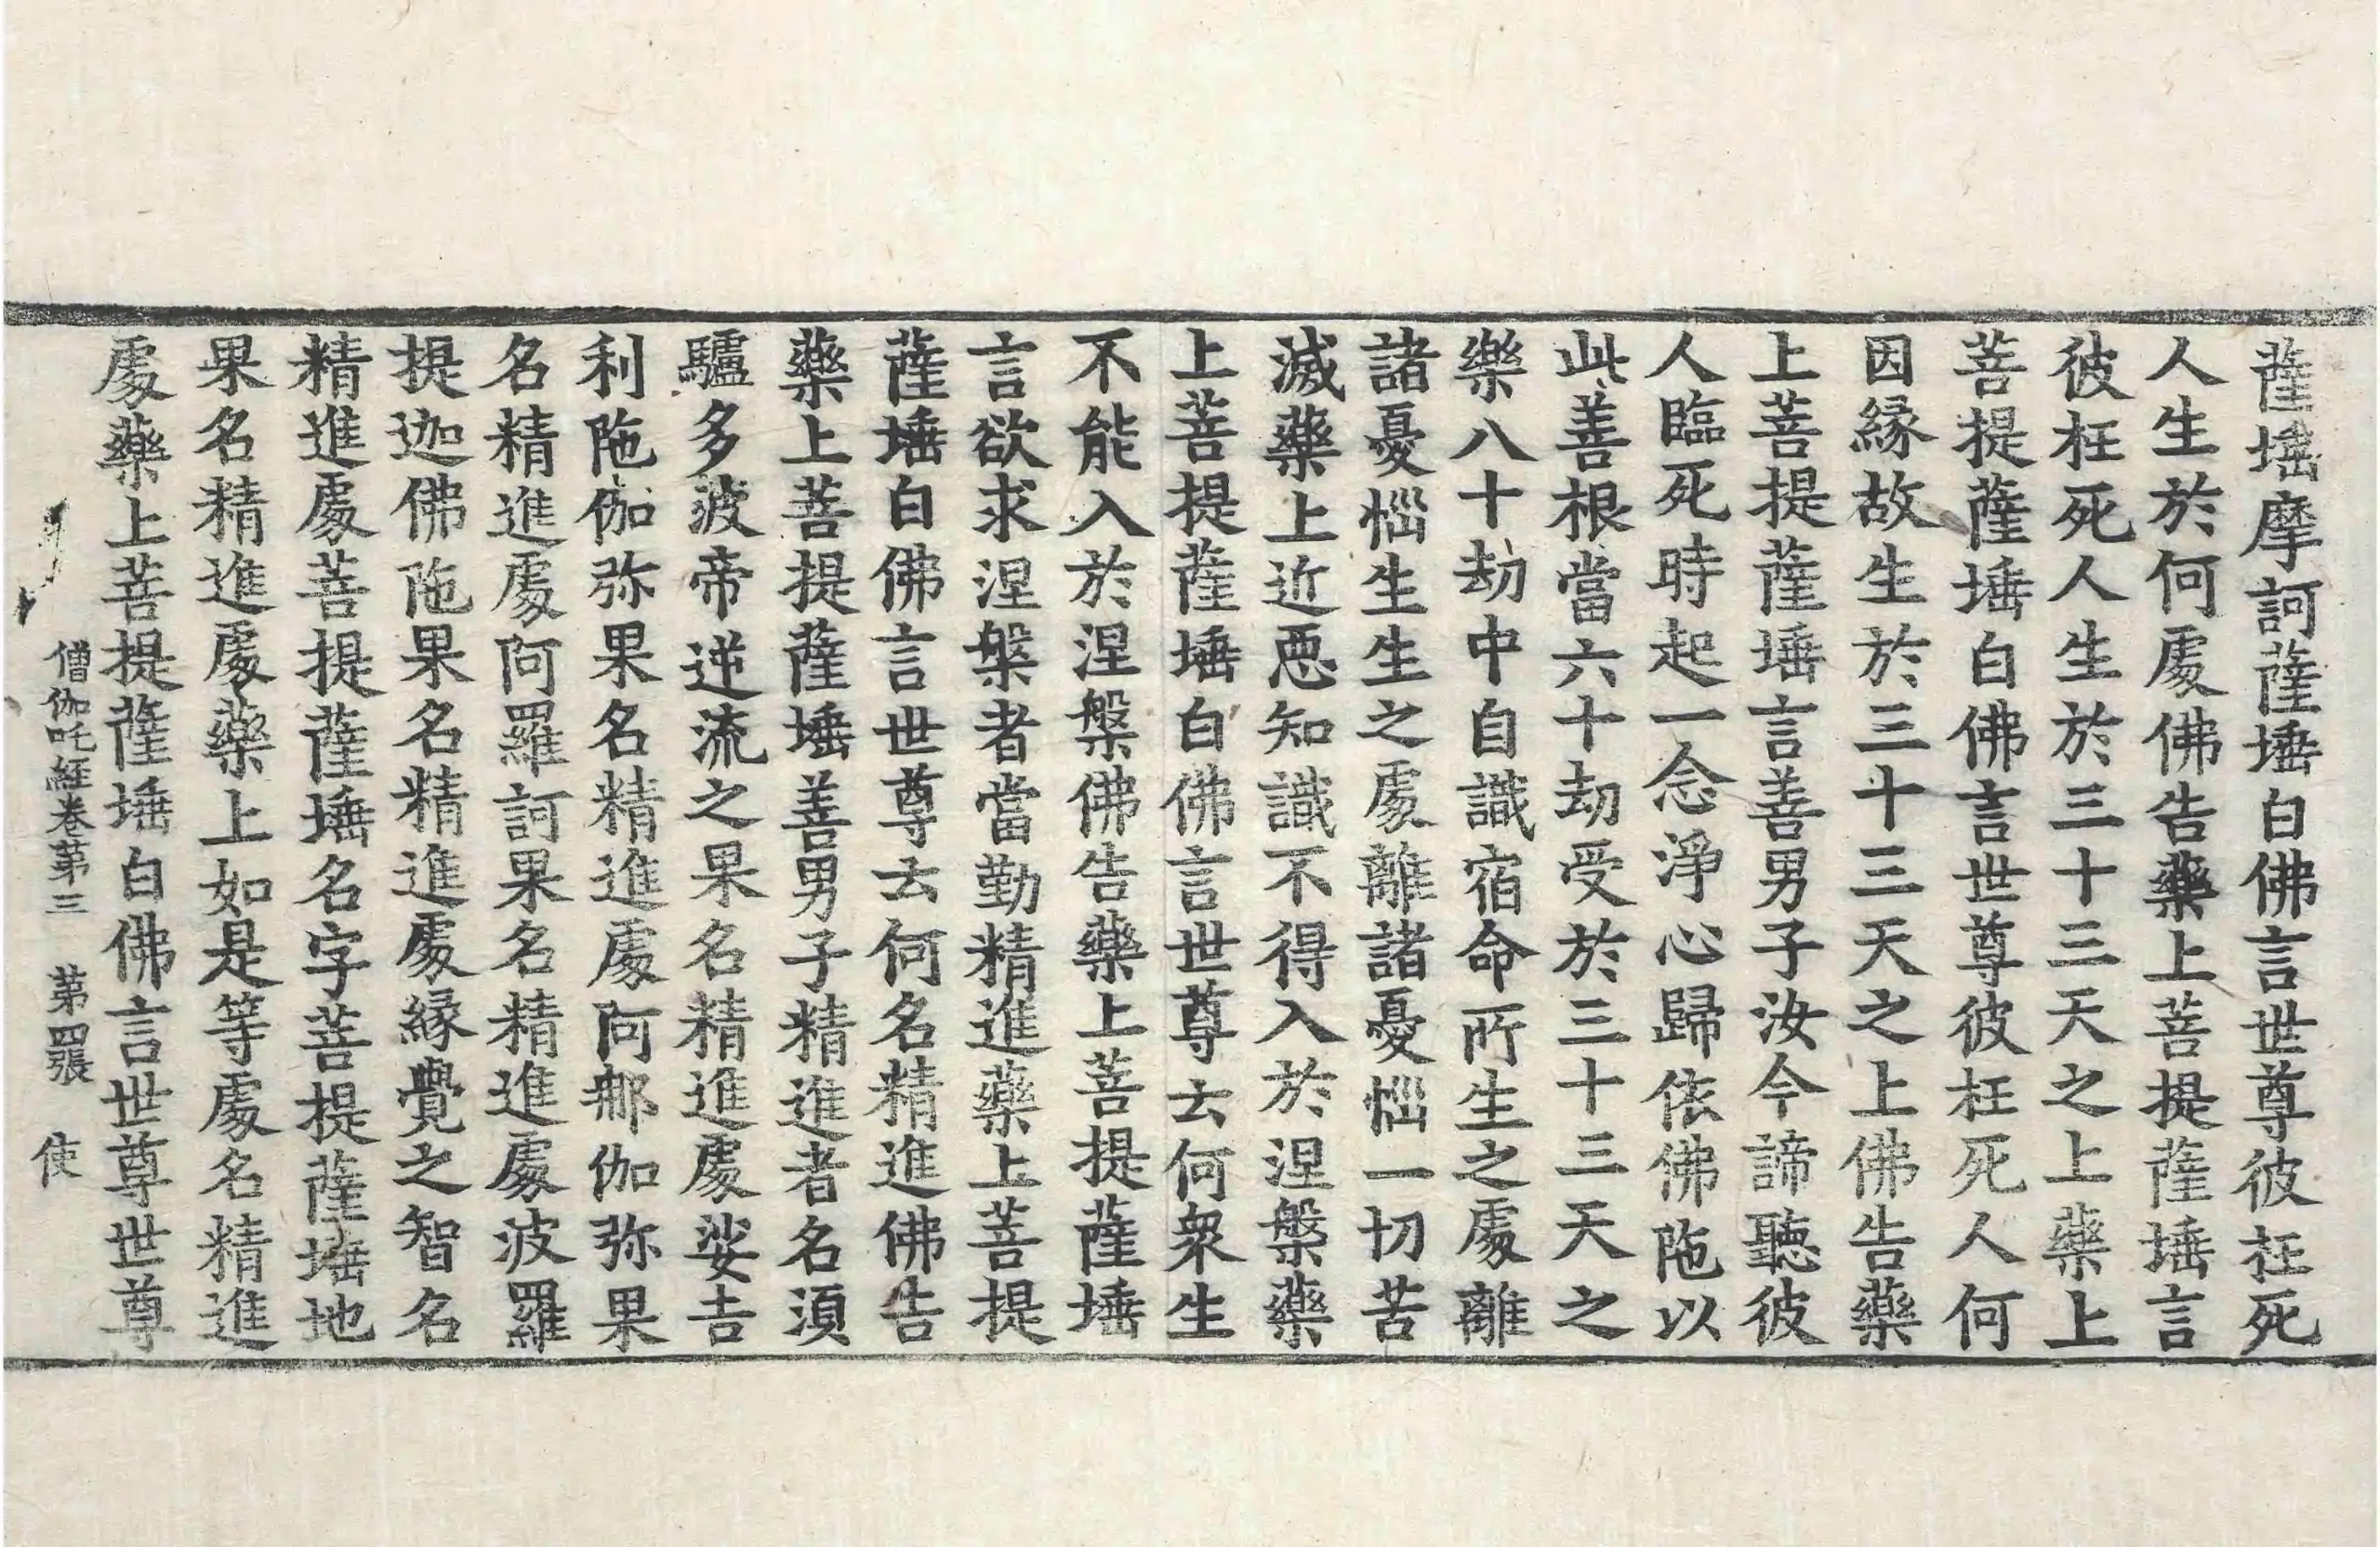 薩埵摩訶薩埵白佛言世尊彼枉死
人生於何處佛告藥上菩提薩埵言
彼枉死人生於三十三天之上藥上
菩提薩埵白佛言世尊彼枉死人何
因縁故生於三十三天之上佛告藥
上菩提薩埵言善男子汝今諦聽彼
人臨死時起一念淨心歸依佛陁以
此善根當六十劫受於三十三天之
樂八十劫中自識宿命所生之處離
諸憂惱生生之處離諸憂惱一切苦
滅藥上近惡知識不得入於涅槃藥
上菩提薩埵白佛言世尊云何衆生
不能入於涅槃佛告藥上菩提薩埵
言欲求涅槃者當勤精進藥上菩提
薩埵白佛言世尊云何名精進佛告
藥上菩提薩埵善男子精進者名湏
驢多波帝逆流之果名精進處娑吉
利陁伽弥果名精進處阿那伽弥果
名精進處阿羅訶果名精進處波羅
提迦佛陁果名精進處縁覺之智名
精進處菩提薩埵名字菩提薩埵地
果名精進處藥上如是等處名精進
處藥上菩提薩埵白佛言世尊世尊
僧伽吒經卷第三 第四張 使